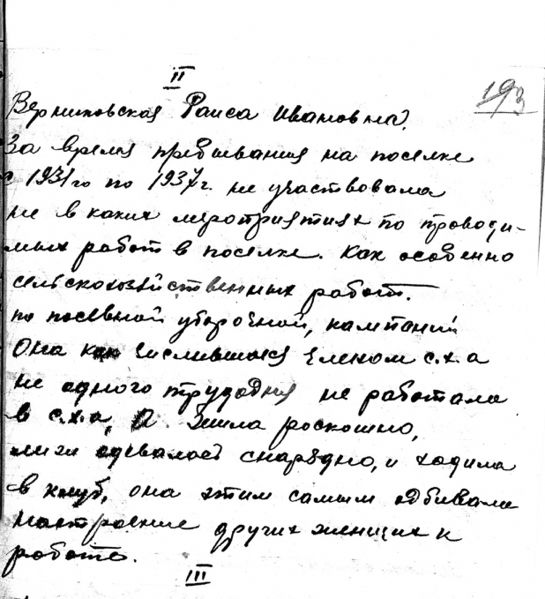 II
193
Верниковская Раиса Ивановна.
За время пребывания на поселке
с 1931го по 1937г. не участвовала
не в каких мероприятиях по проводи-
мых работ в поселке. Как особенно
сельскохозяйственных работ.
по посевной уборочной, кампаний
Она как числившаяся членом с.х.а
не одного трудодня не работала
в с.х.а, А жила роскошно,
одевалась снарядно, и ходила
в клуб, она этим самым отбивала
настроение других женщин к
работе.
III